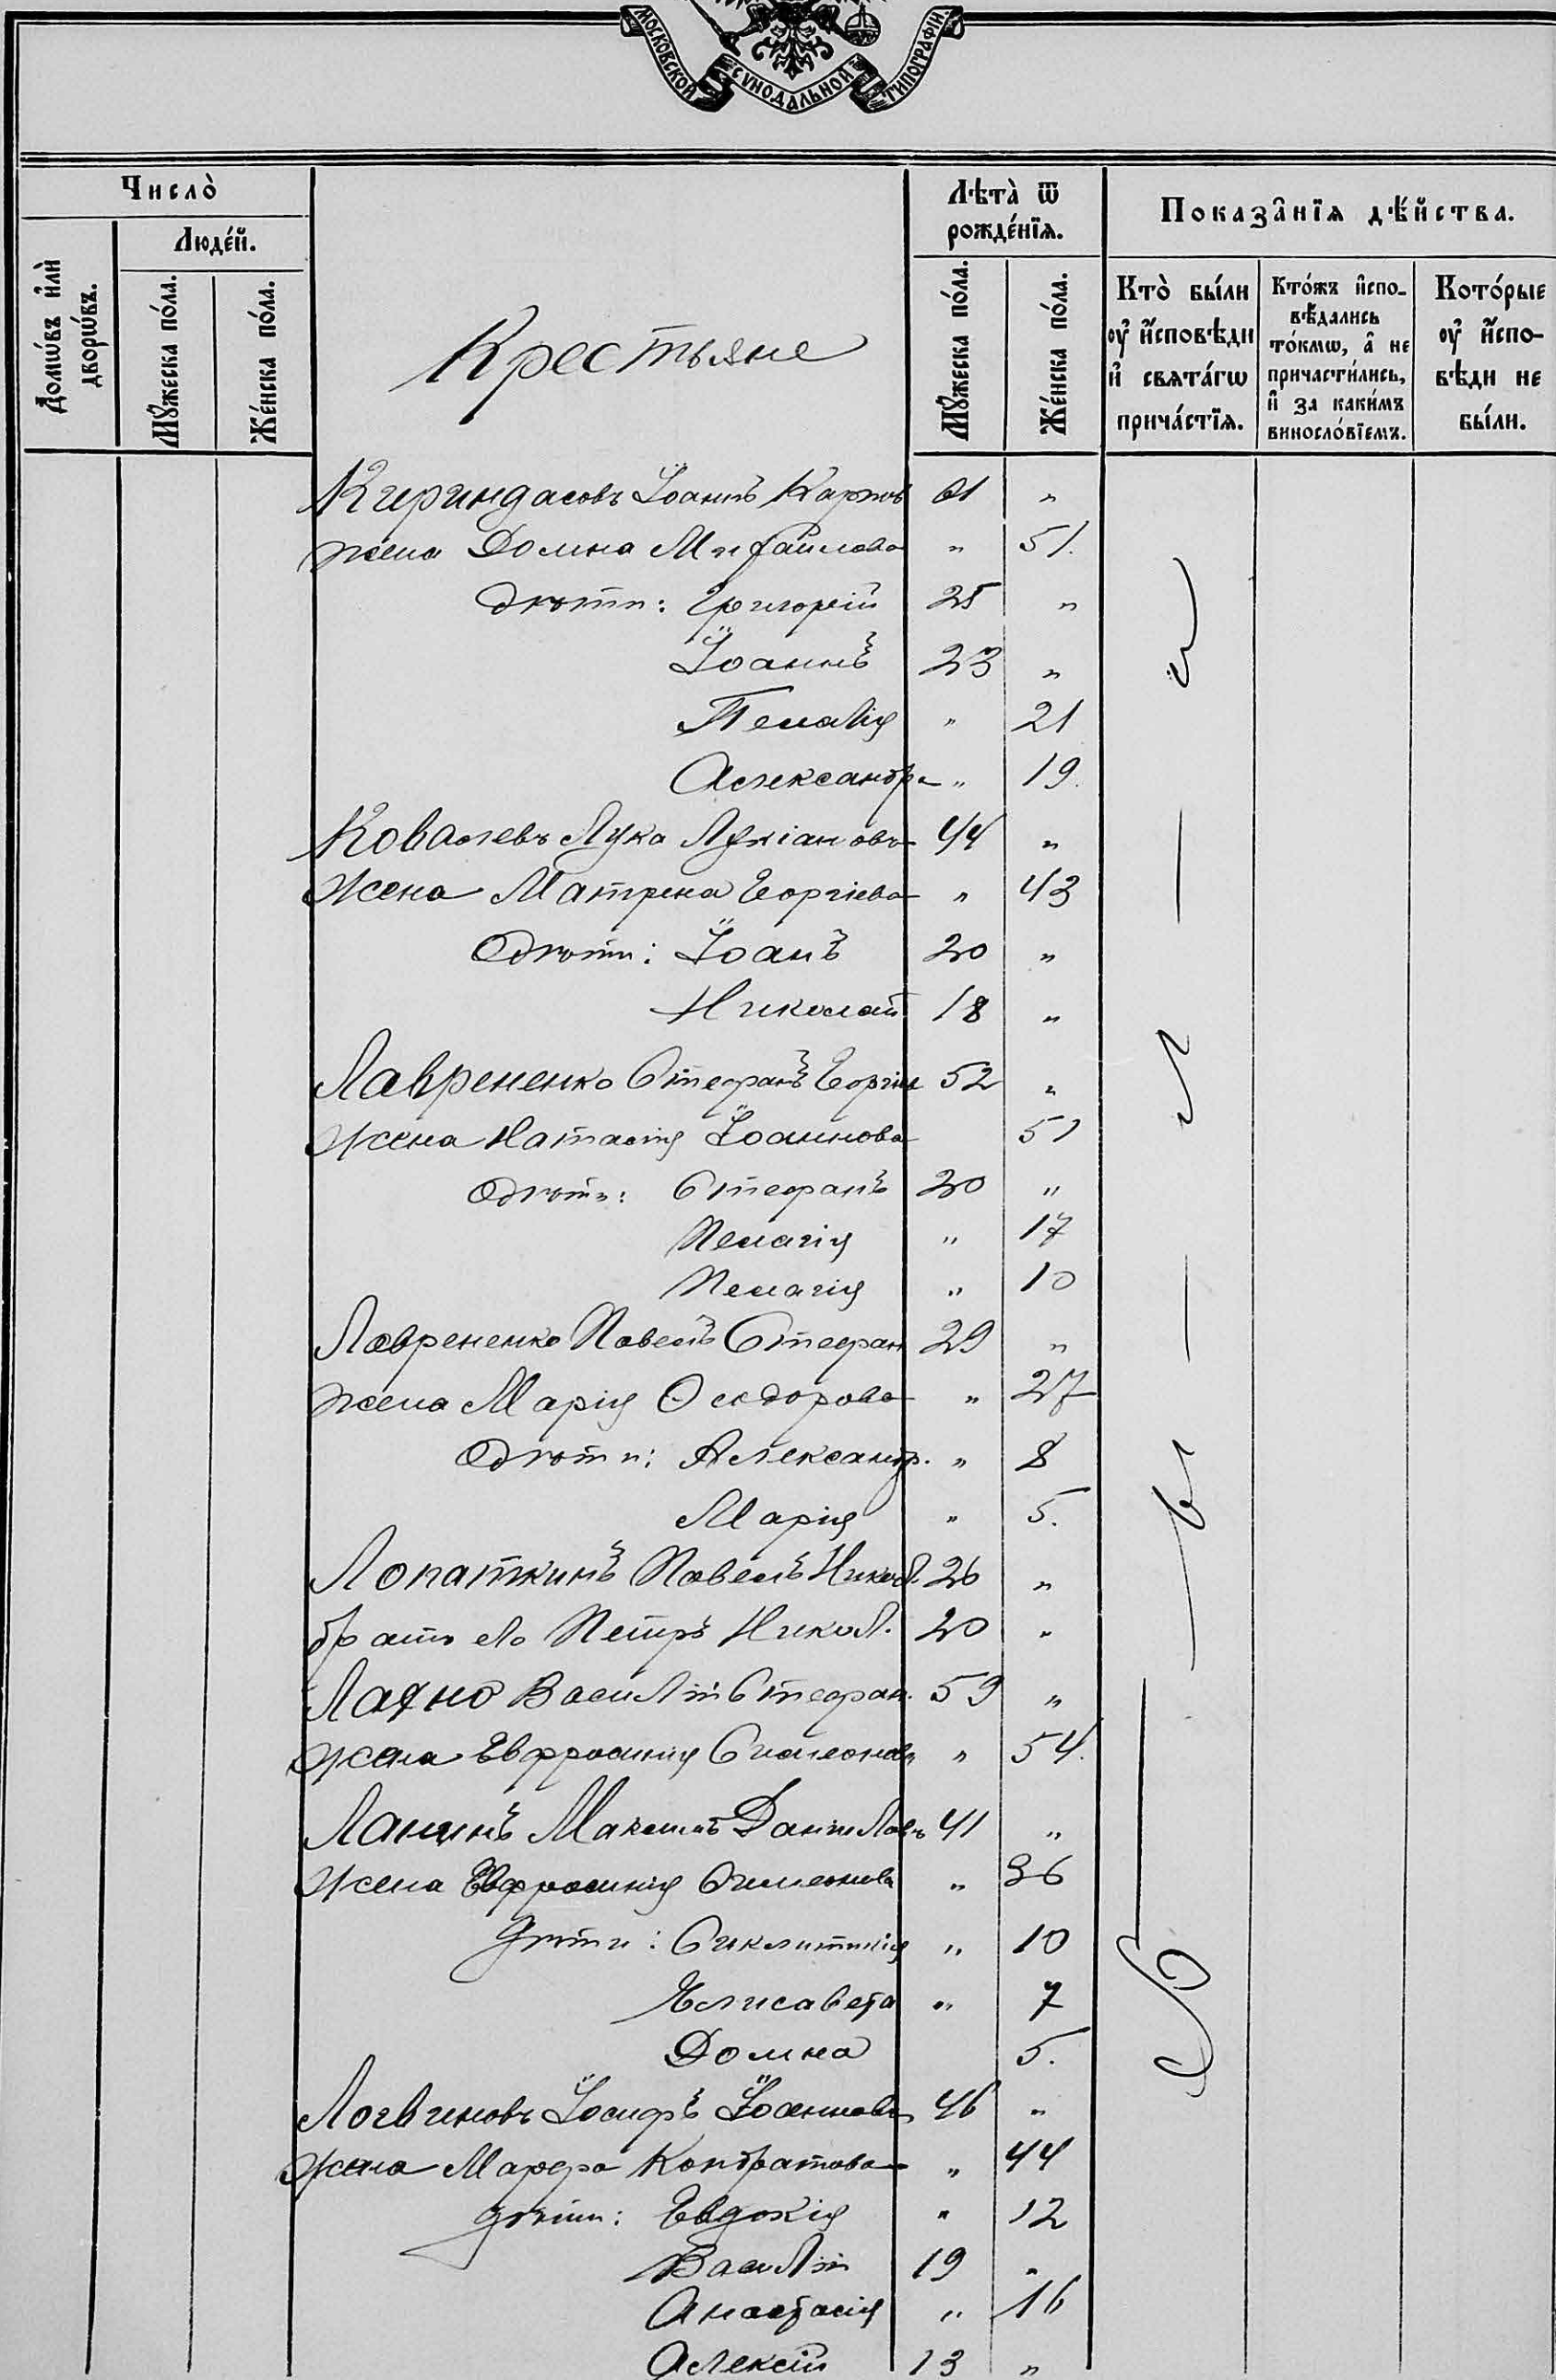 МОСКОВСКОЙ СѴНОДАЛЬНОЙ ТИПОГРАФІИ.
Число̀
Людéй.
Домѡ́въ и҆лѝ дворѡ́въ.
Мꙋ́жеска пóла.
Жéнска пóла.
Крестьяне
Лѣта̀ ѿ рождéнїѧ.
Мꙋ́жеска пóла.
Жéнска пóла.
Показа̑нїѧ дѣ́йства.
Кто̀ бы́ли оу҆ и҆́сповѣди и҆ свѧта́гѡ прича́стїѧ.
Кто́жъ и҆спо-
вѣ́дались
то́кмѡ, а҆ не
причасти́лись,
и҆ за каки́мъ
винослóвїемъ.
Котóрые
оу҆ и҆́спо-
вѣди не
бы́ли.
Кириндасовъ Іоаннъ Карпов 61 "
жена Домна Михайлова " 51.
дѣти: Григорій 25 "
Іоаннъ 23 "
Пелагія " 21
Александра " 19.
Ковалевъ Лука Лукіановъ 44 "
Жена Матрена Георгіева " 43
дѣти: Іоанъ 20 "
Николай 18 "
Лаврененко Стефанъ Георгіев 52 "
жена Наталія Іоаннова 51
дѣти: Стефанъ 20 "
Пелагія " 17
Пелагія " 10
Лаврененко Павелъ Стефан 29 "
жена Марія Ѳеодорова " 27
дѣти: Александр. " 8
Марія " 5.
Лопаткинъ Павелъ Никол. 26 "
братъ его Петръ Никол. 20 "
Лахно Василій Стефан. 59 "
жена Евфросинія Симеонов " 54.
Ланинъ Максимъ Даніиловъ 41 "
жена Евфросинія Симеонова " 36
Дѣти: Синклитикія " 10
Елисавета " 7
Домна 5.
Логвиновъ Іосифъ Іоанновъ 46 "
жена Марфа Кондратова " 44
дѣти: Евдокія " 12
Василій 19 "
Анастасія " 16
Алексій 13 "